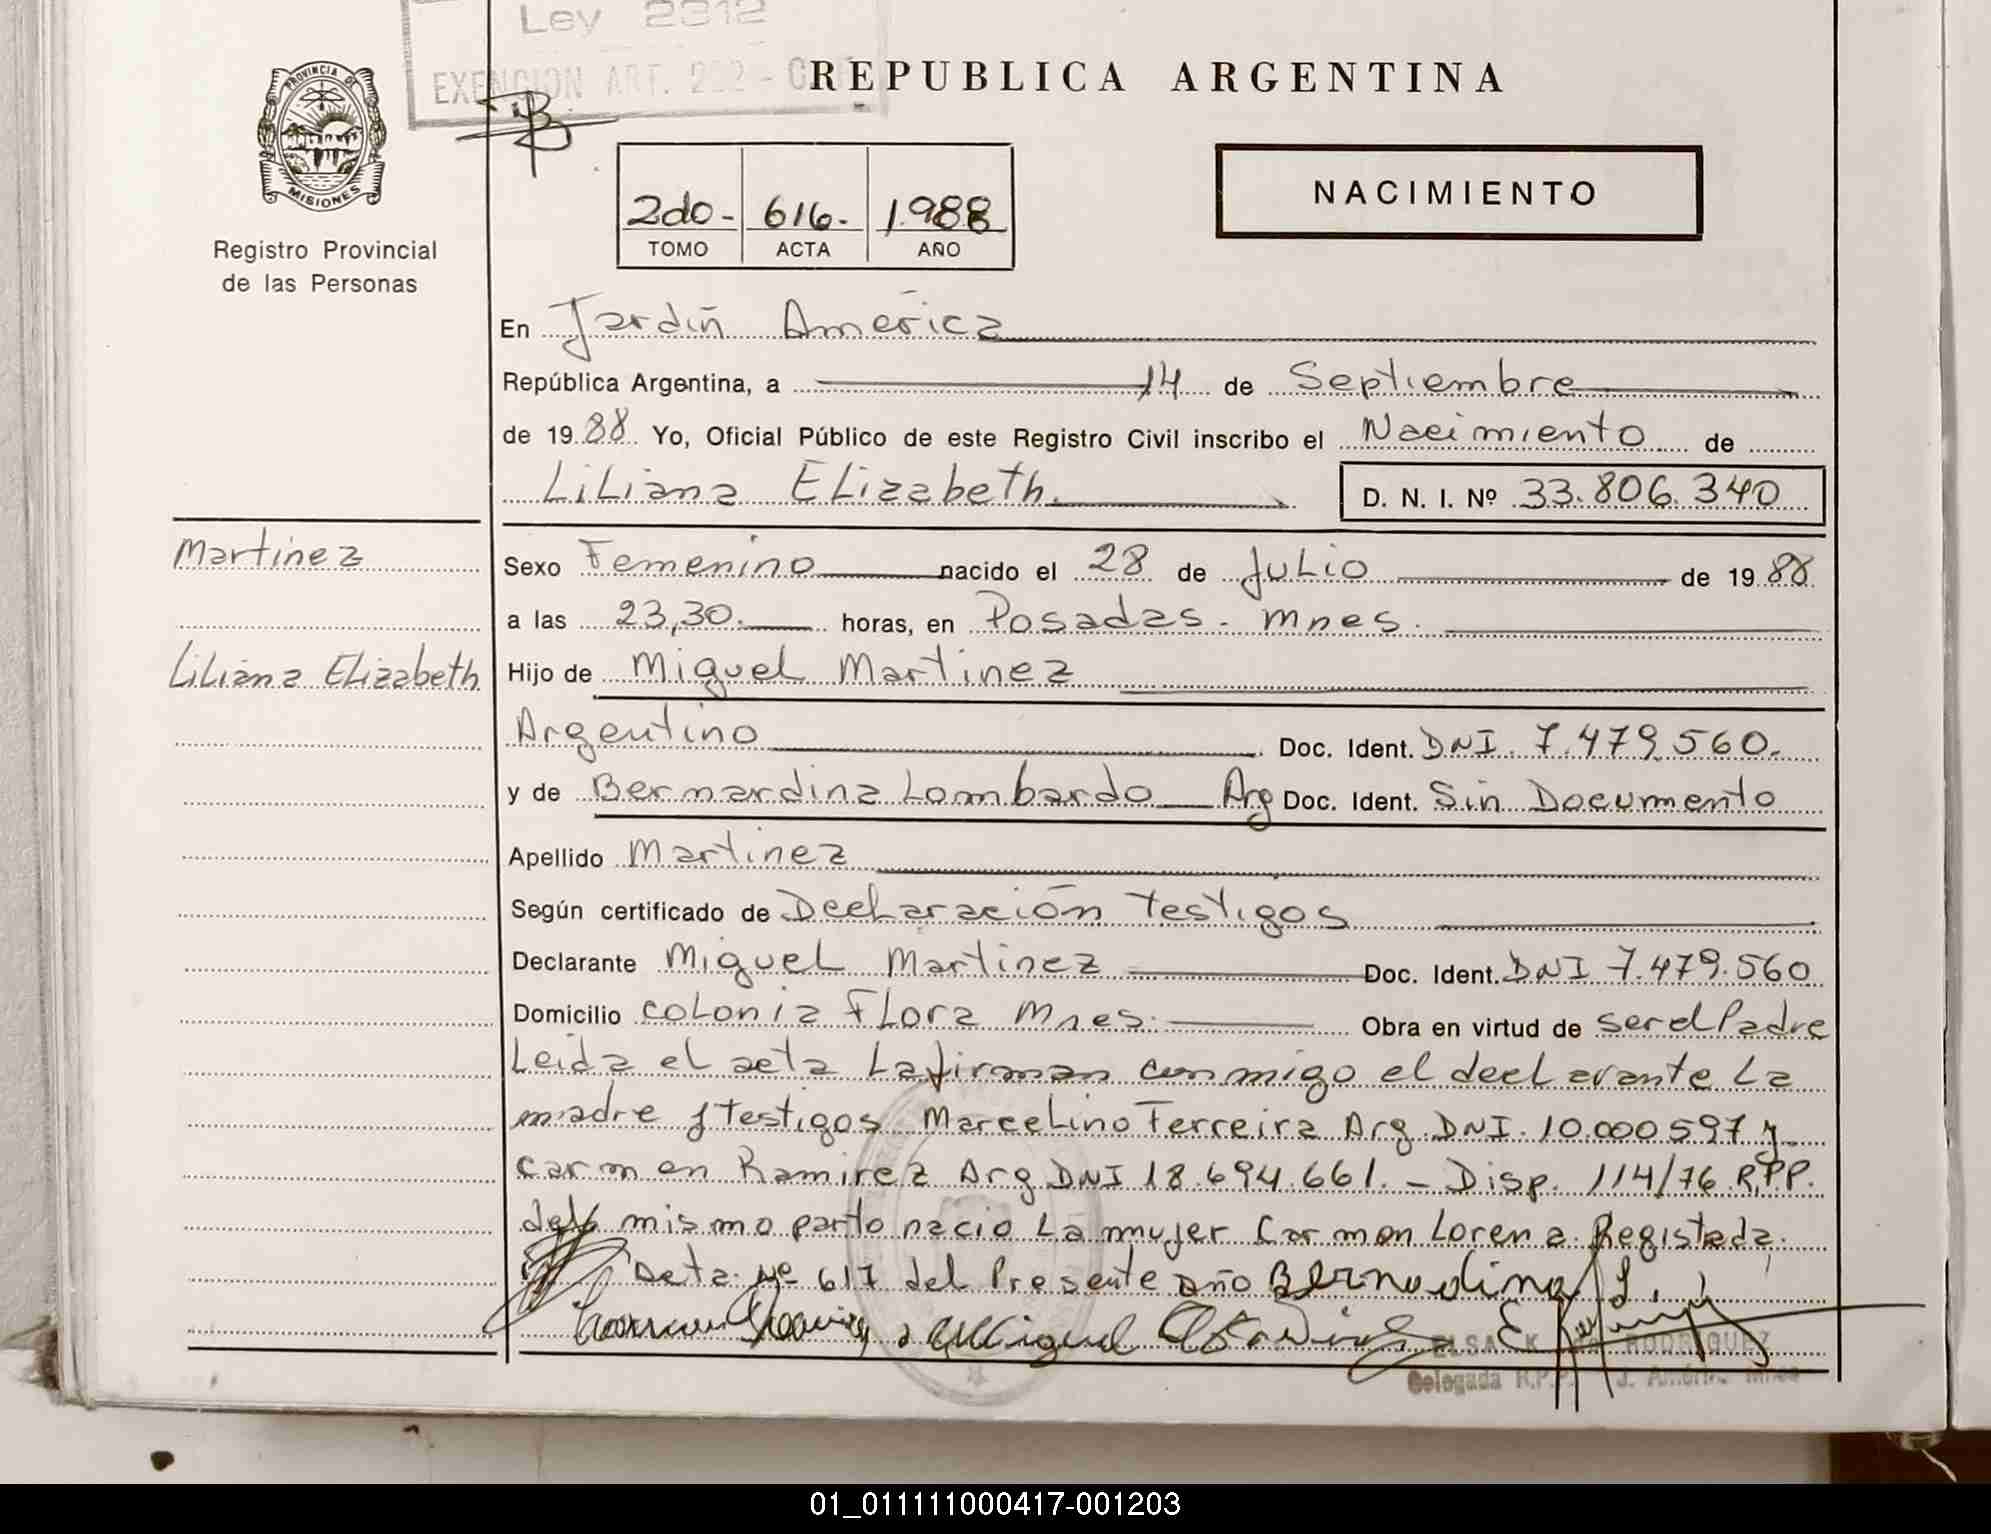 Ley 2312
EXENCION ART. 202 -
REPUBLICA ARGENTINA
PROVINCIA DE
MISIONES
Registro Provincial
de las Personas
2do- 616- 1.988
TOMO ACTA AÑO
NACIMIENTO
En Jardín América
República Argentina, a 14 de Septiembre
de 1988 Yo, Oficial Público de este Registro Civil inscribo el Nacimiento de
Liliana Elizabeth. D. N. I. Nº 33.806.340
Martinez
Liliana Elizabeth
Sexo Femenino nacido el 28 de Julio de 1988
a las 23,30. horas, en Posadas - Mnes.
Hijo de Miguel Martinez
Argentino Doc. Ident. DNI. 7.479.560.
y de Bernardina Lombardo Arg Doc. Ident. Sin Documento
Apellido Martinez
Según certificado de Declaración Testigos
Declarante Miguel Martinez Doc. Ident. DNI 7.479.560
Domicilio Colonia Flora Mnes. Obra en virtud de ser el Padre
Leida el acta La firman conmigo el declarante La
madre y Testigos Marcelino Ferreira Arg DNI. 10.000597 y
Carmen Ramirez Arg DNI 18.694.661. - Disp. 114/76 R.P.P.
del mismo parto nacio La mujer Carmen Lorena Registada
Acta Nº 617 del Presente año Bernadina L.
Miguel
ELSA RODRIGUEZ
Delegada R.P.P. J. Améric. Mnes
01_011111000417-001203